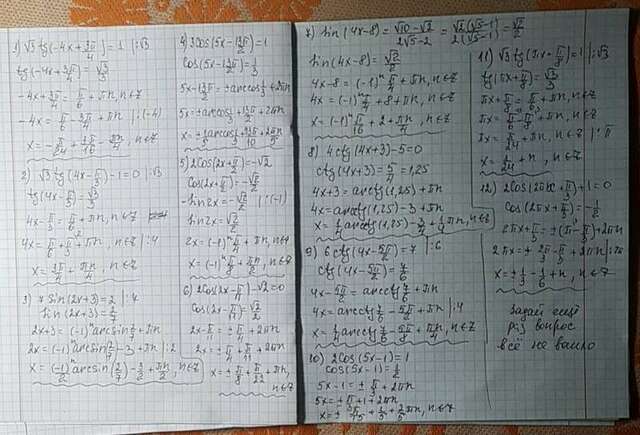 1) √3 tg(-4x + 3π/4) = 1 | :√3
tg(-4x + 3π/4) = √3/3
-4x + 3π/4 = π/6 + πn, n∈Z
-4x = π/6 - 3π/4 + πn | :(-4)
x = -π/24 + 3π/16 - πn/4, n∈Z
2) √3 tg(4x - π/3) - 1 = 0 | :√3
tg(4x - π/3) = √3/3
4x - π/3 = π/6 + πn, n∈Z
4x = π/6 + π/3 + πn, n∈Z | :4
x = π/4 + πn/4, n∈Z
3) 7 sin(2x+3) = 2 | :7
sin(2x+3) = 2/7
2x+3 = (-1)ⁿ arcsin 2/7 + πn
2x = (-1)ⁿ arcsin 2/7 - 3 + πn | :2
x = (-1)ⁿ/2 arcsin(2/7) - 3/2 + πn/2, n∈Z
4) 3cos(5x - 13π/2) = 1
cos(5x - 13π/2) = 1/3
5x - 13π/2 = ± arccos 1/3 + 2πn
5x = ± arccos 1/3 + 13π/2 + 2πn
5) 2cos(2x + π/2) = -√2
cos(2x + π/2) = -√2/2
-sin2x = -√2/2 | :(-1)
sin2x = √2/2
2x = (-1)ⁿ π/4 + πn, n∈Z
x = (-1)ⁿ π/8 + πn/2, n∈Z
6) 2cos(2x - π/11) - √2 = 0
cos(2x - π/11) = √2/2
2x - π/11 = ± π/4 + 2πn
2x = ± π/4 + π/11 + 2πn
x = ± π/8 + π/22 + πn, n∈Z
7) sin(4x-8) = (√10 - √2)/(2√5 - 2) = √2(√5-1)/2(√5-1) = √2/2
sin(4x-8) = √2/2
4x-8 = (-1)ⁿ π/4 + πn, n∈Z
4x = (-1)ⁿ π/4 + 8 + πn, n∈Z
x = (-1)ⁿ π/16 + 2 + πn/4, n∈Z
8) 4ctg(4x+3) - 5 = 0
ctg(4x+3) = 5/4 = 1,25
4x+3 = arcctg(1,25) + πn
4x = arcctg(1,25) - 3 + πn
x = 1/4 arcctg(1,25) - 3/4 + 1/4 πn, n∈Z
9) 6ctg(4x - 5π/2) = 7 | :6
ctg(4x - 5π/2) = 7/6
4x - 5π/2 = arcctg 7/6 + πn
4x = arcctg 7/6 + 5π/2 + πn | :4
x = 1/4 arcctg 7/6 + 5π/8 + πn/4, n∈Z
10) 2cos(5x-1) = 1
cos(5x-1) = 1/2
5x-1 = ± π/3 + 2πn
5x = ± π/3 + 1 + 2πn
x = ± π/15 + 1/5 + 2/5 πn, n∈Z
11) √3 tg(πx + π/8) = 1 | :√3
tg(πx + π/8) = √3/3
πx + π/8 = π/6 + πn, n∈Z
πx = π/6 - π/8 + πn, n∈Z
πx = π/24 + πn, n∈Z | :π
x = 1/24 + n, n∈Z
12) 2cos(2πx + π/3) + 1 = 0
cos(2πx + π/3) = -1/2
2πx + π/3 = ±(π - π/3) + 2πn
2πx = ± 2π/3 - π/3 + 2πn | :2π
x = ± 1/3 - 1/6 + n, n∈Z
Задай ещё
раз вопрос
всё не вошло